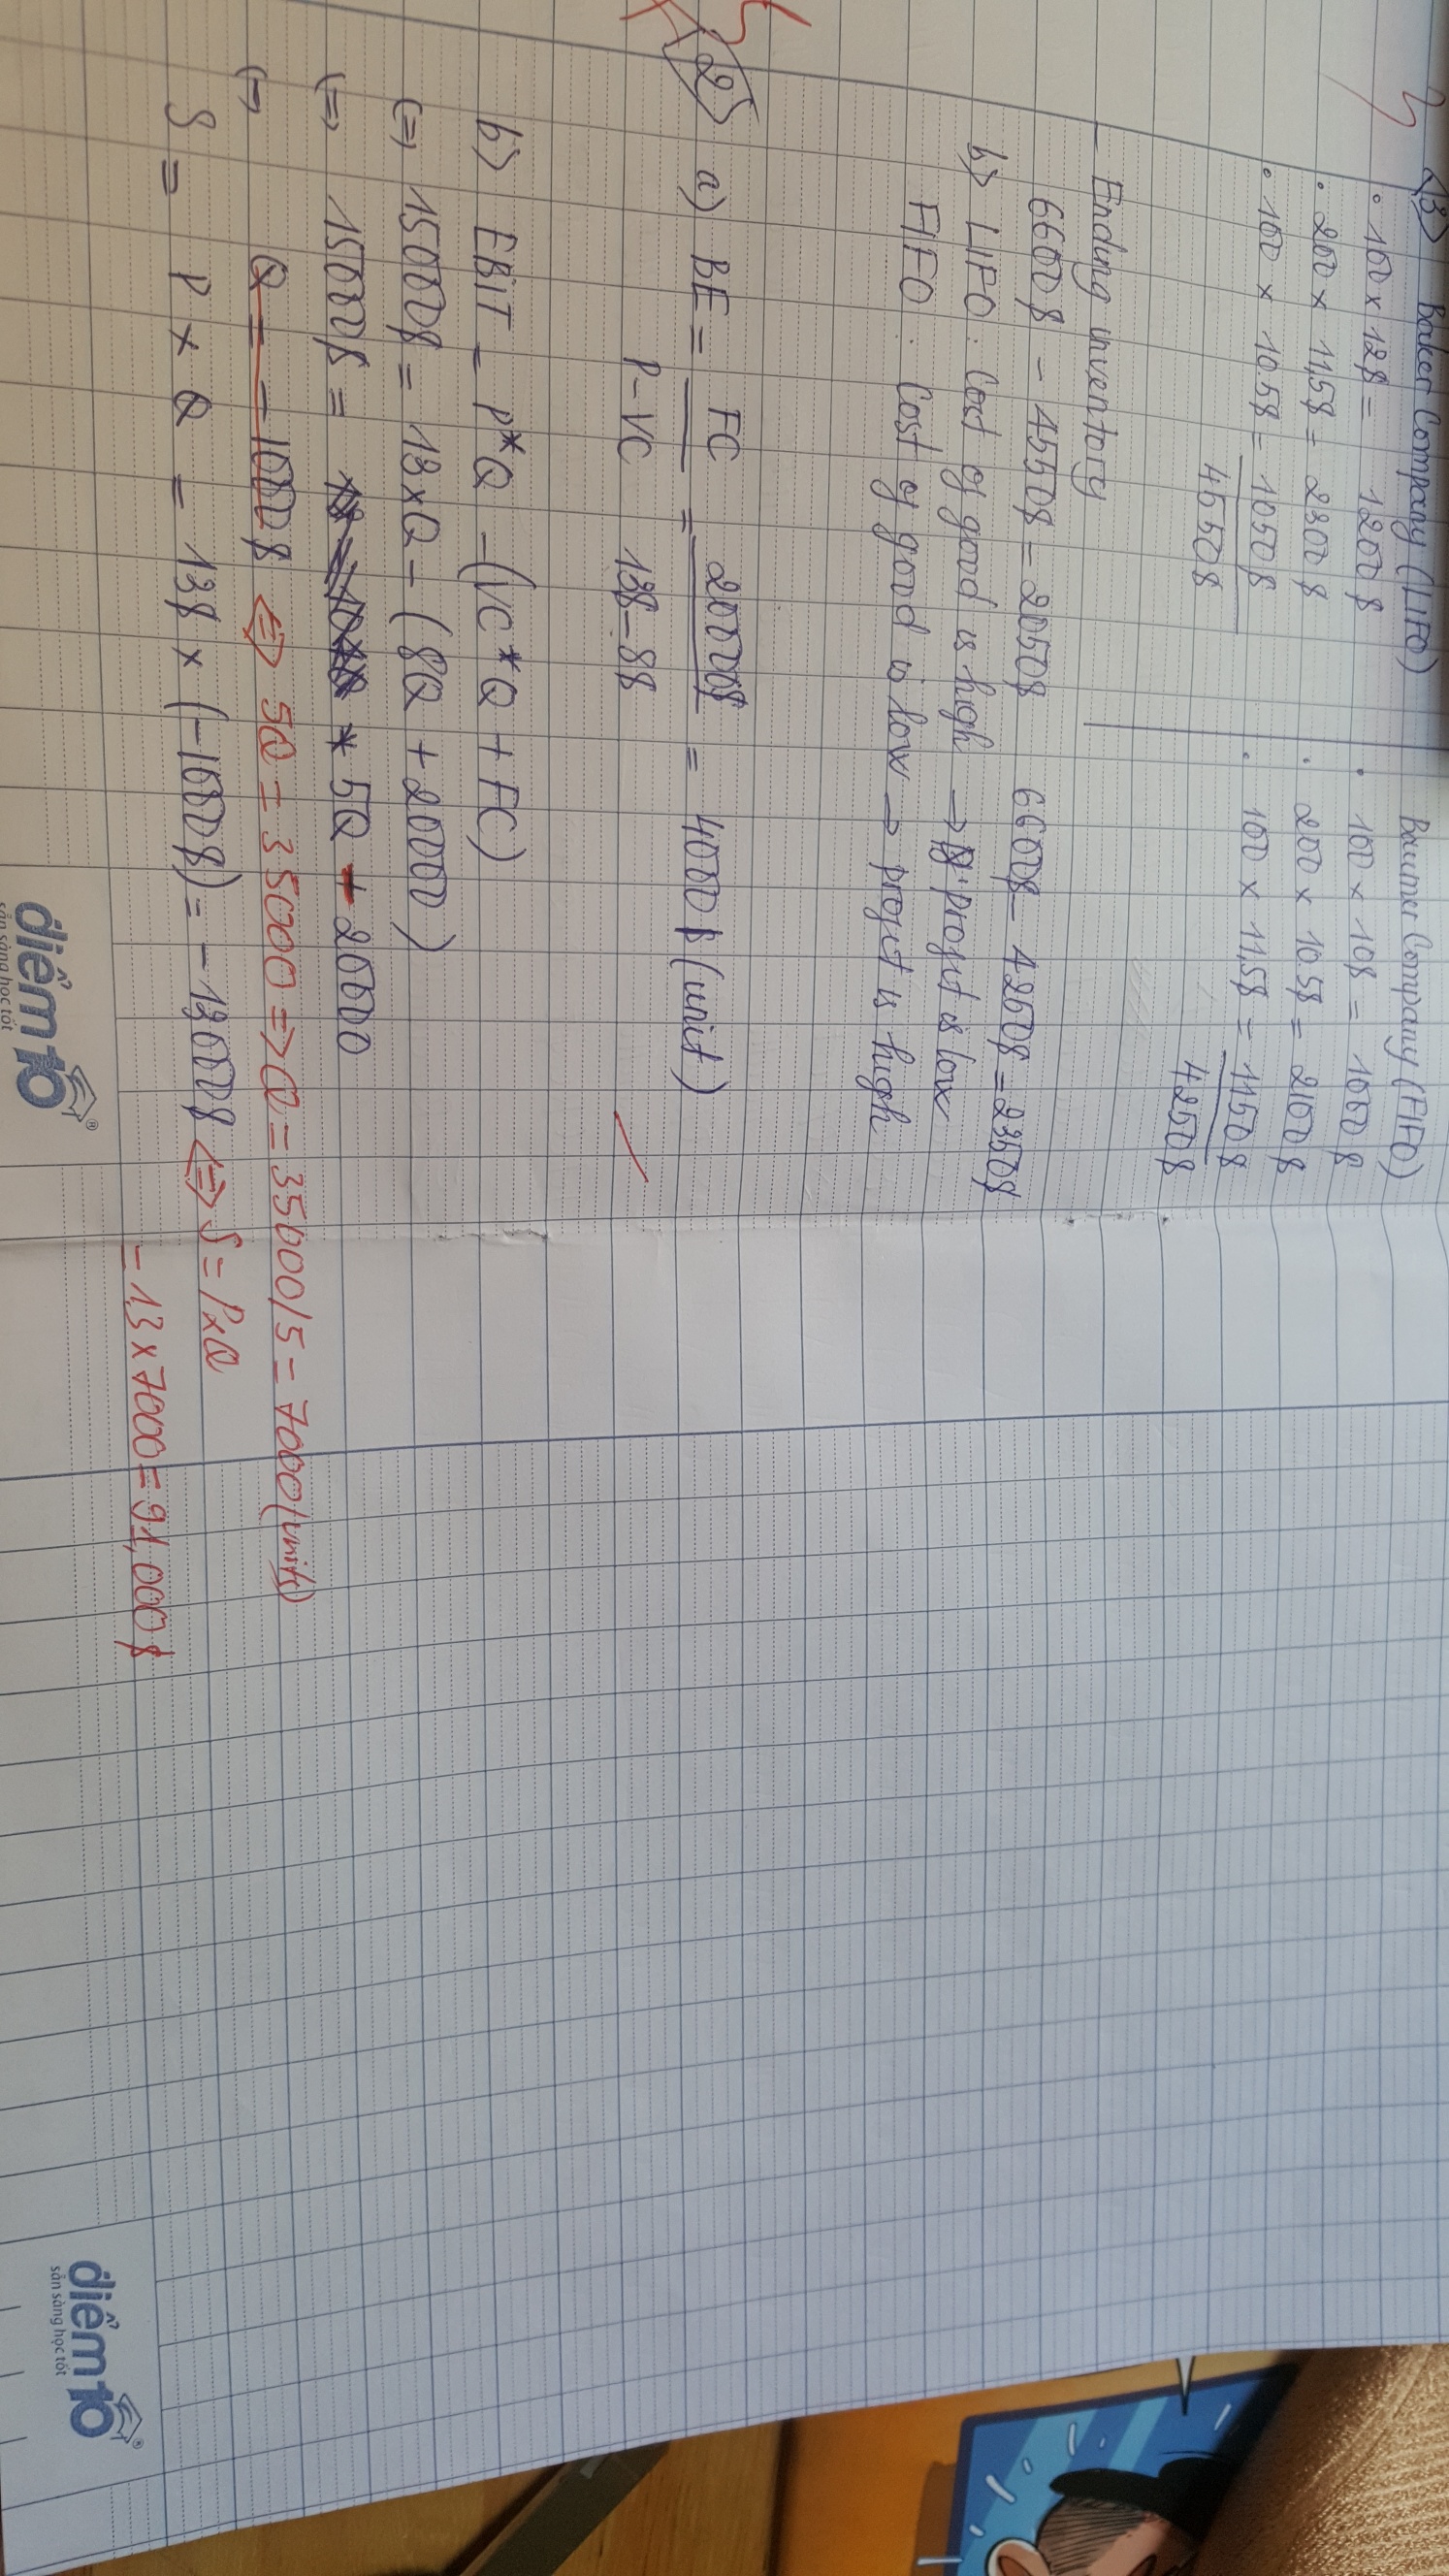 3) Baker Company (LIFO) Baumer Company (FIFO)
• 100 x 12$ = 1200 $ • 100 x 10$ = 1000 $
• 200 x 11,5$ = 2300 $ • 200 x 10.5$ = 2100 $
• 100 x 10.5$ = 1050 $ • 100 x 11,5$ = 1150 $
4550 $ 4250 $
- Ending inventory
6600 $ - 4550 $ = 2050 $ 6600$ - 4250$ = 2350$
b) LIFO: Cost of good is high → profit is low
FIFO: Cost of good is low → profit is high
2) a) BE = FC = 20000$ = 4000 (unit)
P-VC 13$-8$
b) EBIT = P*Q - (VC*Q + FC)
(=) 15000$ = 13xQ - (8Q + 20000)
(=) 15000$ = * 5Q - 20000
(=) Q = - 1000 $ <=> 5Q = 35000 => Q = 35000/5 = 7000 (units)
S = P x Q = 13$ x (-1000$) = -13000$ <=> S = PxQ
= 13 x 7000 = 91,000 $
điểm10®
sẵn sàng học tốt
điểm10®
sẵn sàng học tốt